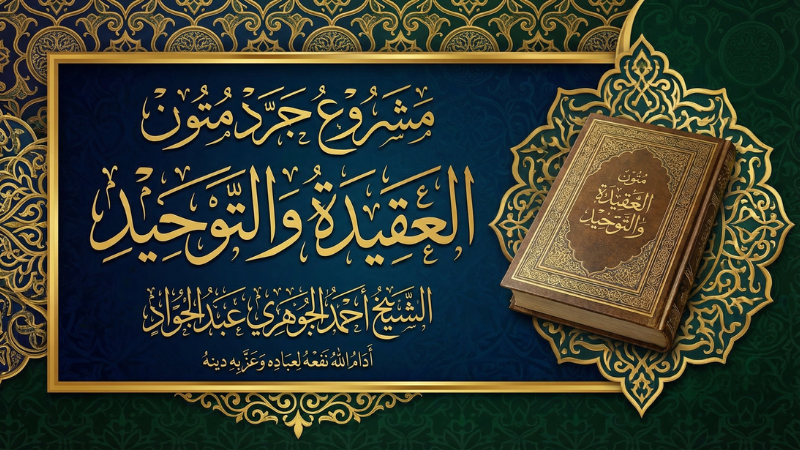 مَشْرُوعُ جَرَّدِ مُتُونِ
العَقِيدَةُ وَالتَّوْحِيدِ
الشَّيْخُ أَحْمَدُ الجُوهَرِي عَبْدُ الجُوَّادِ
أَدَامُ اللهُ نَفْعَهُ لِعِبَادِهِ وَعَزَّ بِهِ دِينَهُ
مُتُونُ
العَقِيدَةِ
وَالتَّوْحِيدِ